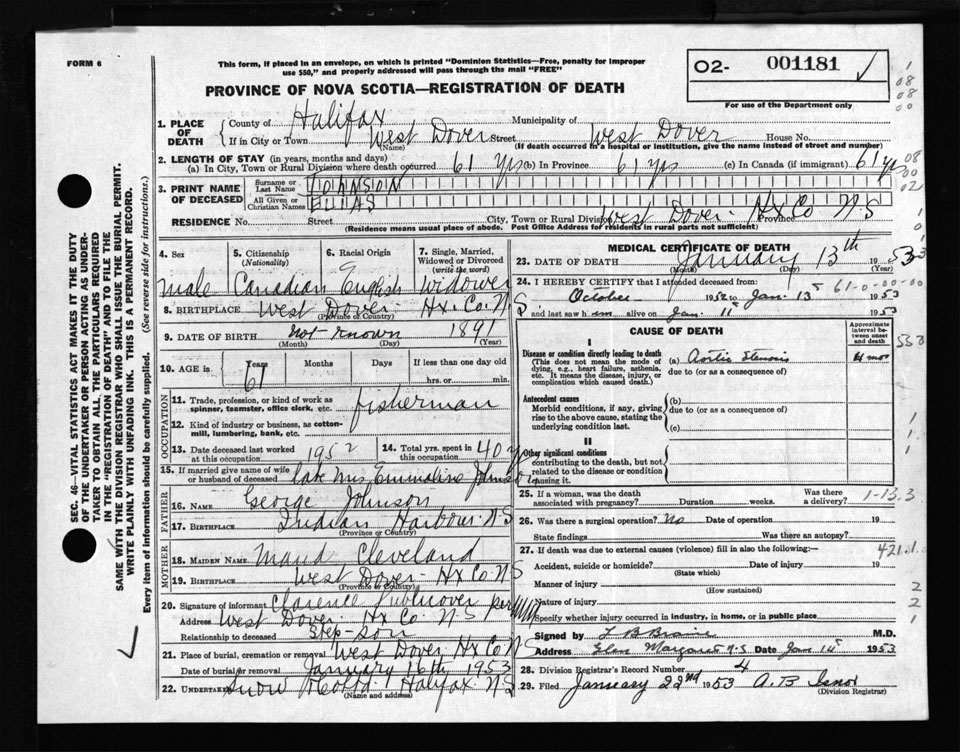 FORM 6
This form, if placed in an envelope, on which is printed "Dominion Statistics—Free, penalty for improper
use $50," and properly addressed will pass through the mail "FREE"
PROVINCE OF NOVA SCOTIA—REGISTRATION OF DEATH
02- 001181
For use of the Department only
SEC. 46—VITAL STATISTICS ACT MAKES IT THE DUTY
OF THE UNDERTAKER OR PERSON ACTING AS UNDER-
TAKER TO OBTAIN ALL THE PARTICULARS REQUIRED
IN THE "REGISTRATION OF DEATH" AND TO FILE THE
SAME WITH THE DIVISION REGISTRAR WHO SHALL ISSUE THE BURIAL PERMIT.
WRITE PLAINLY WITH UNFADING INK. THIS IS A PERMANENT RECORD.
Every item of information should be carefully supplied. (See reverse side for instructions.)
1. PLACE OF DEATH
County of Halifax Municipality of
If in City or Town West Dover Street West Dover House No.
(Name) (If death occurred in a hospital or institution, give the name instead of street and number)
2. LENGTH OF STAY (in years, months and days)
(a) In City, Town or Rural Division where death occurred 61 yrs (b) In Province 61 yrs (c) In Canada (if immigrant) 61 yrs
3. PRINT NAME OF DECEASED
Surname or Last Name JOHNSON
All Given or Christian Names ELIAS
RESIDENCE No. Street City, Town or Rural Division West Dover Hx Co Province N.S
(Residence means usual place of abode. Post Office Address for residents in rural parts not sufficient)
4. Sex male
5. Citizenship (Nationality) Canadian
6. Racial Origin English
7. Single, Married, Widowed or Divorced (write the word) Widower
8. BIRTHPLACE West Dover Hx. Co. N S
(Province or Country)
9. DATE OF BIRTH not known 1891
(Month) (Day) (Year)
10. AGE in Years 61 Months Days If less than one day old
hrs. or min.
OCCUPATION
11. Trade, profession, or kind of work as spinner, teamster, office clerk, etc. fisherman
12. Kind of industry or business, as cotton-mill, lumbering, bank, etc.
13. Date deceased last worked at this occupation 1952
14. Total yrs. spent in this occupation 40 y
15. If married give name of wife or husband of deceased late Mrs Emmaline Johnson
FATHER
16. NAME George Johnson
17. BIRTHPLACE Indian Harbour N.S
(Province or Country)
MOTHER
18. MAIDEN NAME Maud Cleveland
19. BIRTHPLACE West Dover Hx Co. N S
(Province or Country)
20. Signature of informant Clarence Publicover per
Address West Dover Hx Co. N S
Relationship to deceased Step-son
21. Place of burial, cremation or removal West Dover Hx Co N S
Date of burial or removal January 16th 1953
22. UNDERTAKER Snow Halifax N.S
(Name and address)
MEDICAL CERTIFICATE OF DEATH
23. DATE OF DEATH January 13th 1953
(Month) (Day) (Year)
24. I HEREBY CERTIFY that I attended deceased from:
October 1952 to Jan. 13 1953
61-0-00-00
and last saw him alive on Jan. 11 1953
CAUSE OF DEATH
Approximate interval between onset and death
I
Disease or condition directly leading to death (a) Aortic Stenosis 4 mos
(This does not mean the mode of dying, e.g., heart failure, asthenia, etc. It means the disease, injury, or complication which caused death.)
due to (or as a consequence of)
Antecedent causes
Morbid conditions, if any, giving rise to the above cause, stating the underlying condition last.
(b)
due to (or as a consequence of)
(c)
II
Other significant conditions
contributing to the death, but not related to the disease or condition causing it.
25. If a woman, was the death associated with pregnancy? Duration weeks. Was there a delivery?
1-13.3
26. Was there a surgical operation? No Date of operation 19
State findings Was there an autopsy?
27. If death was due to external causes (violence) fill in also the following:—
421.1
Accident, suicide or homicide? Date of injury 19
(State which)
Manner of injury
(How sustained)
Nature of injury
Specify whether injury occurred in industry, in home, or in public place
Signed by M.D.
Address Glen Margaret N.S Date Jan 15 1953
28. Division Registrar's Record Number 4
29. Filed January 22nd 1953 A.B Isnor
(Division Registrar)